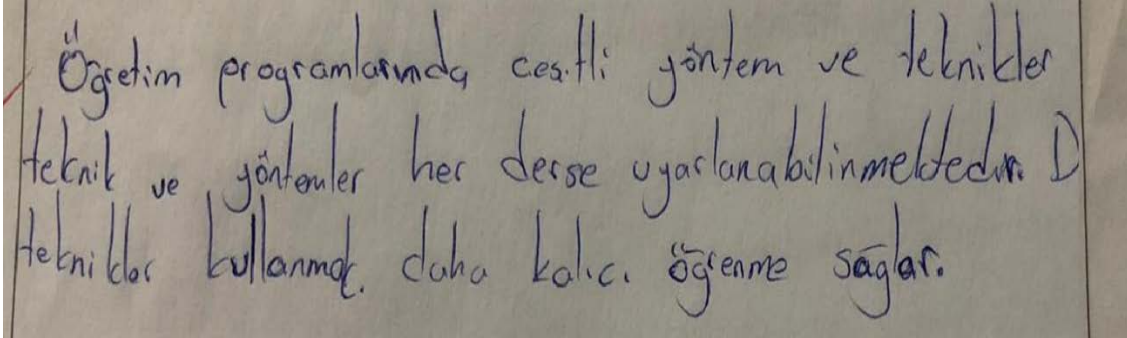 Öğretim programlarında çeşitli yöntem ve teknikler
teknik ve yöntemler her derse uyarlanabilinmektedir. D
teknikler kullanmak daha kalıcı öğrenme sağlar.